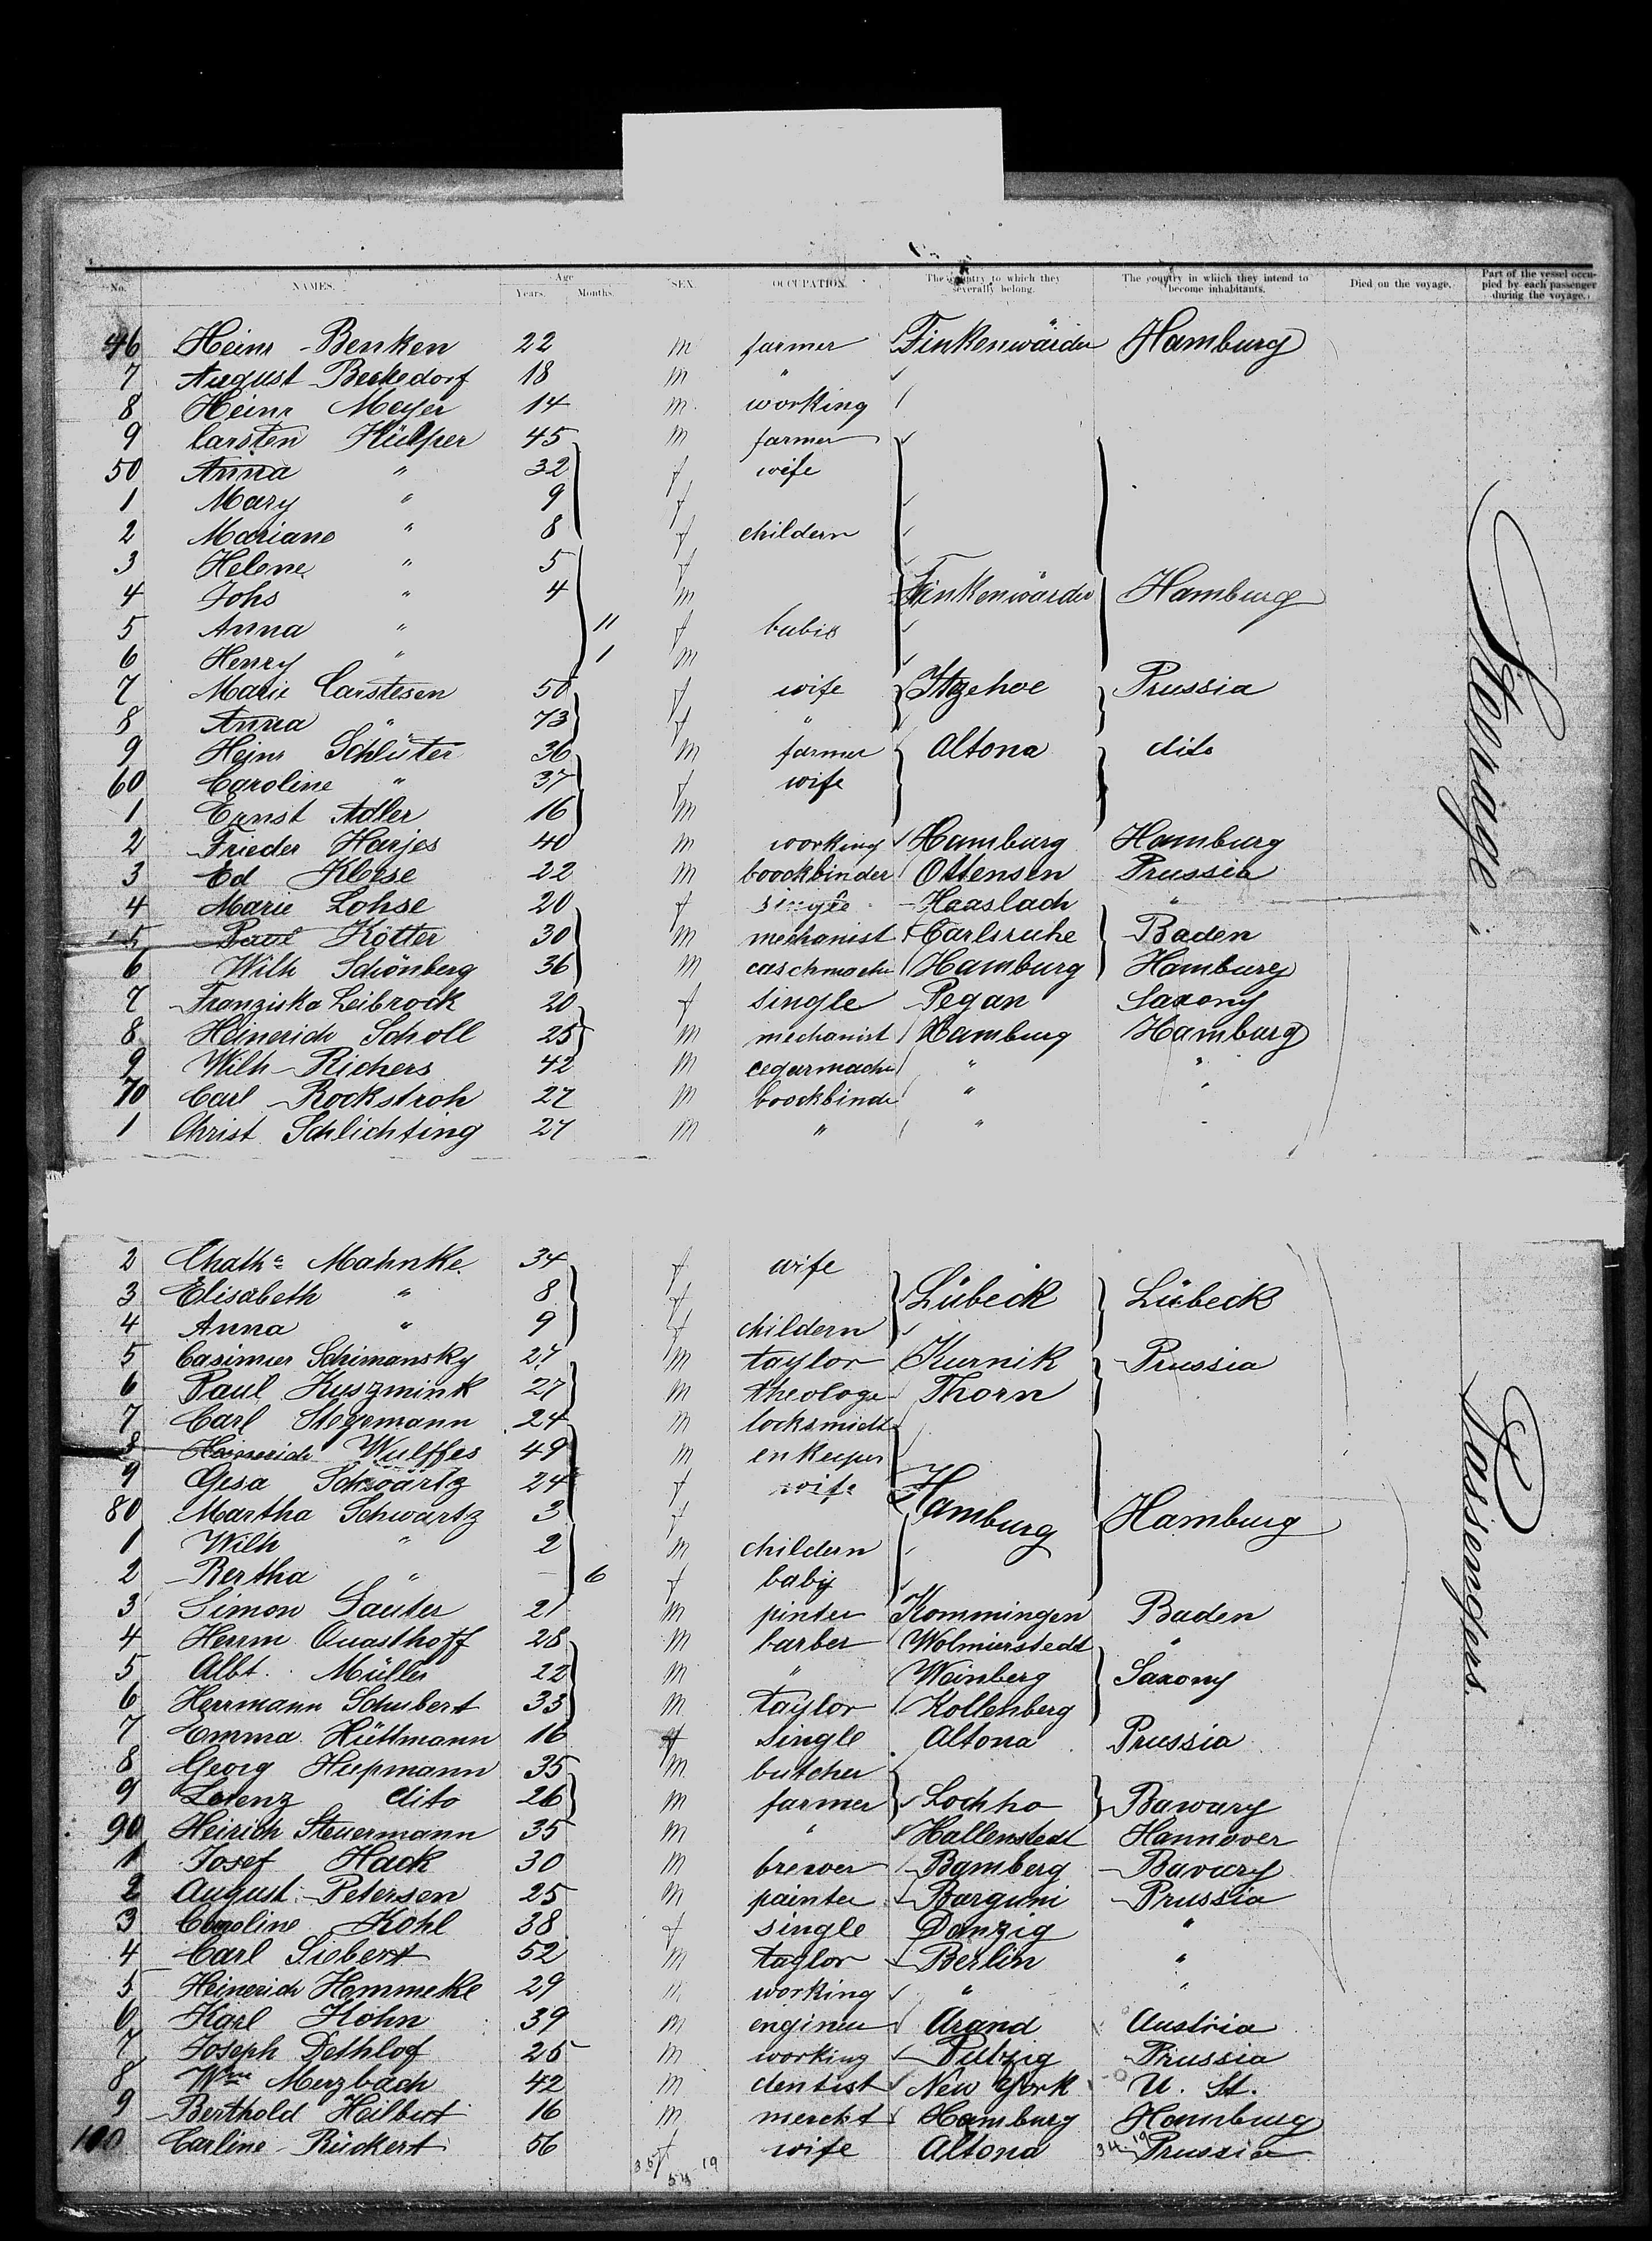 No. NAMES. Age Years. Months. SEX. OCCUPATION. The country to which they severally belong. The country in which they intend to become inhabitants. Died on the voyage. Part of the vessel occupied by each passenger during the voyage.
46 Heinr Benken 22 m farmer Finkenwärder Hamburg
7 August Beckedorf 18 m "
8 Heinr Meyer 14 m working
9 Carsten Hülper 45 m farmer
50 Anna " 32 f wife
1 Mary " 9 f
2 Mariane " 8 f childern
3 Helene " 5 f
4 Johs " 4 m Finkenwärder Hamburg
5 Anna " 11 f babis
6 Henry " 1 m
7 Marie Carstesen 50 f wife Itzehoe Prussia
8 Anna " 73 f "
9 Heinr Schlüter 36 m farmer Altona dito
60 Caroline " 37 f wife
1 Ernst Adler 16 m
2 Frieder Harjes 40 m working Hamburg Hamburg
3 Ed Klose 22 m boockbinder Ottensen Prussia
4 Marie Lohse 20 f single Haaslach "
5 Paul Kötter 30 m mechanist Carlsruhe Baden
6 Wilh Schönberg 36 m Hamburg Hamburg
7 Franziska Leibrock 20 f single Pegan Saxony
8 Heinerich Scholl 25 m mechanist Hamburg Hamburg
9 Wilh Richers 42 m cegarmach " "
70 Carl Rockstroh 27 m boockbinde " "
1 Christ Schlichting 27 m " " "
2 Chath Mahnke 34 f wife
3 Elisabeth " 8 f Lübeck Lübeck
4 Anna " 9 f childern
5 Casimier Schimansky 27 m taylor Kurnik Prussia
6 Paul Kuszmink 27 m theologe Thorn
7 Carl Stegemann 24 m locksmidt
8 Heinerich Wulffes 49 m enkeeper
9 Gesa Schwärtz 24 f wife Hamburg Hamburg
80 Martha Schwartz 3 f
1 Wilh " 2 m childern
2 Bertha " 6 f baby
3 Simon Sauter 21 m pinter Kommingen Baden
4 Herrm Quasthoff 28 m barber Wolmierstedt "
5 Albt. Müller 22 m " Weinberg Saxony
6 Herrmann Schubert 33 m taylor Kollenberg
7 Emma Hüttmann 16 f single Altona Prussia
8 Georg Hupmann 35 m butcher
9 Lorenz dito 26 m farmer Lochho Bawary
90 Heirich Steuermann 35 m " Hallenstedt Hannover
1 Josef Hack 30 m brewer Bamberg Bavary
2 August Petersen 25 m painter Bargumi Prussia
3 Caroline Kohl 38 f single Danzig "
4 Carl Siebert 52 m taylor Berlin "
5 Heinerich Hemmeke 29 m working " "
6 Karl Kohn 39 m engineer Arand Austria
7 Joseph Dethlof 25 m working Putzig Prussia
8 Wm Merzbach 42 m dentist New York U. St.
9 Berthold Heilbut 16 m merckt Hamburg Hamburg
100 Carline Rückert 56 f wife Altona Prussia
Steerage
Passengers